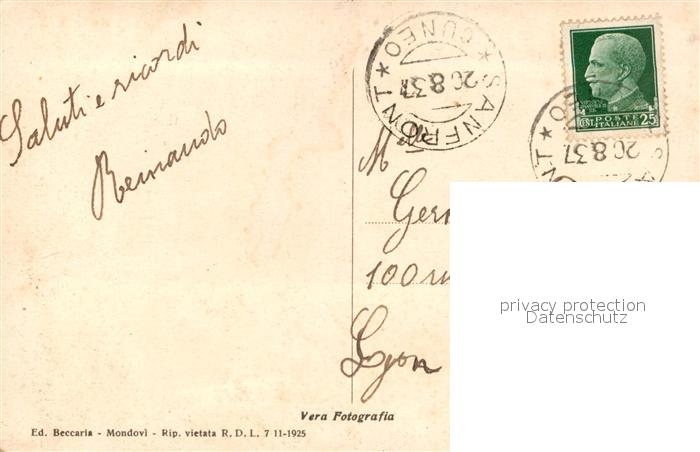 Saluti e ricordi
* SANFRONT * CUNEO
20.8.37
POSTE
ITALIANE
CENT. 25
20.8.37
M
Ger
100 ru
Lyon
privacy protection
Datenschutz
Vera Fotografia
Ed. Beccaria - Mondovì - Rip. vietata R. D. L. 7 11-1925